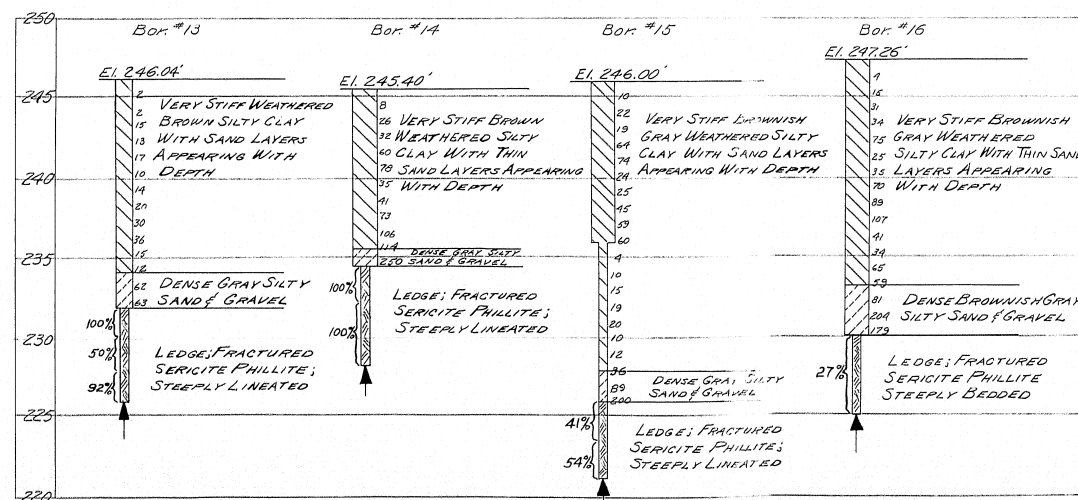 250
Bor. #13
Bor. #14
Bor. #15
Bor. #16
El. 246.04'
El. 245.40'
El. 246.00'
El. 247.26'
245
240
235
230
225
220
2
2
15
13
17
10
14
20
30
36
15
12
62
63
VERY STIFF WEATHERED
BROWN SILTY CLAY
WITH SAND LAYERS
APPEARING WITH
DEPTH
DENSE GRAY SILTY
SAND & GRAVEL
100%
50%
92%
LEDGE; FRACTURED
SERICITE PHILLITE;
STEEPLY LINEATED
8
26
32
60
78
35
41
73
106
114
250
VERY STIFF BROWN
WEATHERED SILTY
CLAY WITH THIN
SAND LAYERS APPEARING
WITH DEPTH
DENSE GRAY SILTY
SAND & GRAVEL
100%
100%
LEDGE; FRACTURED
SERICITE PHILLITE;
STEEPLY LINEATED
10
22
19
64
74
24
25
45
59
60
4
10
15
19
20
10
12
36
89
200
VERY STIFF BROWNISH
GRAY WEATHERED SILTY
CLAY WITH SAND LAYERS
APPEARING WITH DEPTH
DENSE GRAY SILTY
SAND & GRAVEL
41%
54%
LEDGE; FRACTURED
SERICITE PHILLITE;
STEEPLY LINEATED
4
15
31
34
75
25
35
70
89
107
41
34
65
59
81
204
179
VERY STIFF BROWNISH
GRAY WEATHERED
SILTY CLAY WITH THIN SAND
LAYERS APPEARING
WITH DEPTH
DENSE BROWNISH GRAY
SILTY SAND & GRAVEL
27%
LEDGE; FRACTURED
SERICITE PHILLITE
STEEPLY BEDDED